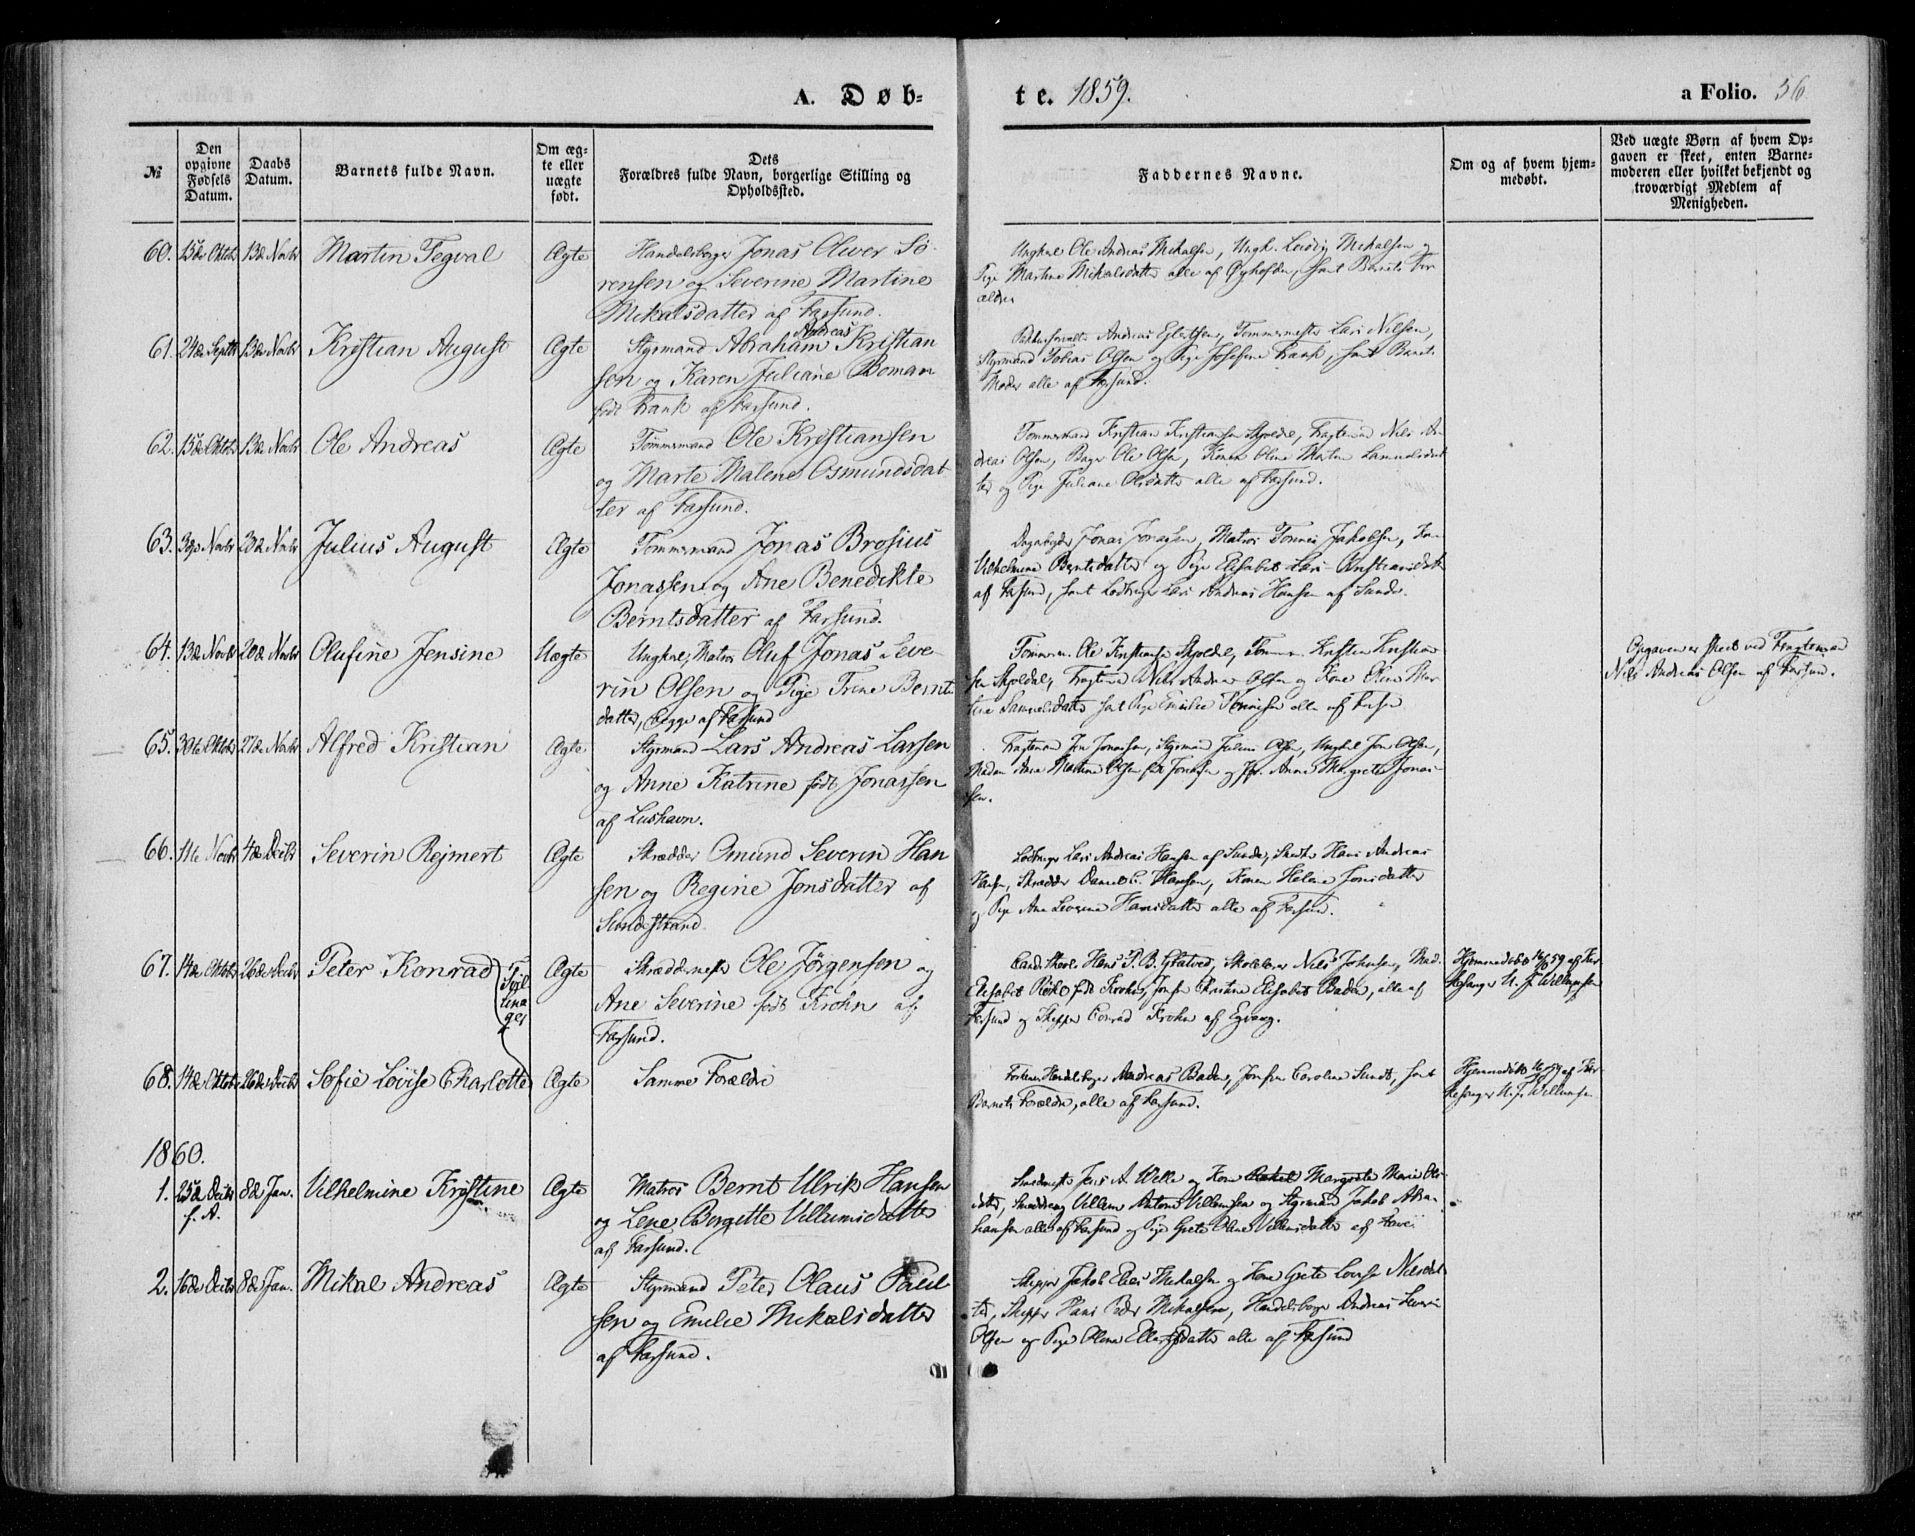 A. Døb-
te. 1859.
a Folio. 56
№
Den opgivne Fødsels Datum.
Daabs Datum.
Barnets fulde Navn.
Om æg-
te eller
uægte
født.
Dets
Forældres fulde Navn, borgerlige Stilling og
Opholdssted.
Faddernes Navne.
Om og af hvem hjem-
medøbt.
Ved uægte Børn af hvem Op-
gaven er skeet, enten Barne-
moderen eller hvilket bekjendt og
troværdigt Medlem af
Menigheden.
60. 15de Oktbr 13de Novbr Martin Tegval Ægte Handelsborger Jonas Oliver Sö-
rensen og Severine Martine
Mikalsdatter af Farsund.
Ungkarl Ole Andreas Mikalsen, Ungk. Mikalsen og
Pige Martine Mikalsdatter alle af samt Barnets For
ældre
61. 24de Septbr 13de Novbr Kristian August Ægte Styrmand Abraham Andreas Kristian
sen og Karen Juliane Boman
født Frank af Farsund.
Andreas Eilertsen, Tommermester Lars Nilsen,
Styrmand Tobias Olsen og Pige Josefine Frank, samt Barnets
Moder alle af Farsund.
62. 15de Oktbr 13de Novbr Ole Andreas Ægte Tømmermand Ole Kristiansen
og Marte Malene Osmundsdat
ter af Farsund.
Tommermand Kristian Kristiansen Skjoldal, Fragtemand Nils An
dreas Olsen, Bager Ole Olsen, Konen Oline Martine Samuelsdat
ter og Pige Juliane Olsdatter alle af Farsund.
63. 3die Novbr 20de Novbr Julius August Ægte Tommermand Jonas Brosius
Jonassen og Ane Benedikte
Berntsdatter af Farsund.
Dagarbejder Jonas Jonassen, Matros Tönnes Jakobsen,
Vilhelmine Berntsdatter og Pige Elisabet Kristiansdatter
af Farsund, samt Lods Lars Andreas Hansen af Sunde.
64. 13de Novbr 20de Novbr Olufine Jensine Uægte Ungkarl, Matros Oluf Jonas Seve-
rin Olsen og Pige Trine Bernts
datter, begge af Farsund
Tommerm. Ole Kristiansen Skjoldal, Tommerm. Kristian Kristian
sen Skjoldal, Fragtemand Nils Andreas Olsen og Kone Oline Mar
tine Samuelsdatter samt Pige Emilie Tönnesen alle af Farsun
Opgaven er skeet ved Fragtemand
Nils Andreas Olsen af Farsund.
65. 30te Oktbr 27de Novbr Alfred Kristian Ægte Styrmand Lars Andreas Larsen
og Anne Katrine født Jonassen
af Lushavn.
Fragtemand Jonassen, Styrmand Julius Olsen, Ungkarl Jon Olsen,
Madam Ane Martine Olsen født Jonassen og Jfr. Anne Margrete Jonas-
sen.
66. 11te Novbr 4de Decbr Severin Rejmert Ægte Skrædder Omund Severin Han
sen og Regine Jonsdatter af
Sundestrand
Lars Andreas Hansen af Sunde, Hans Andreas
Hansen, Skrædder Daniel C. Hansen, Konen Helene Jonsdatter
og Pige Ane Severine Hansdatter alle af Farsund.
67. 14de Oktbr 26de Decbr Peter Konrad (Tvil
linger Ægte Skræddermester Ole Jörgensen og
Ane Severine født Krohn af
Farsund.
Cand. theol. Hans P. B. Glatved, Skolelærer Nils Johnsen, Mad.
Elisabet født Krohn, Jomfru Kristine Elisabet Baden, alle af
Farsund og Skipper Conrad Krohn af Egvaag.
Hjemmedöbt 59 af Kir
kesanger U. F. Willumsen
68. 14de Oktbr 26de Decbr Sofie Lovise Charlotte Ægte Samme Forældre
Handelsborger Andreas Baden, Jomfru Caroline Sundt, samt
Barnets Forældre, alle af Farsund.
Hjemmedöbt 59 af Kir
kesanger U. F. Willumsen
1860.
1. 25de Decbr f. A. 8de Jan. Vilhelmine Kristine Ægte Matros Bernt Ulrik Hansen
og Lene Borgitte Villumsdatter
af Farsund.
Jens A. Welle og Kone Margrete Marie Ols
datter, Villum Anton Villumsen og Styrmand Jakob Abra-
hamsen alle af Farsund og Pige Grete Oline Villumsdatter af
2. 16de Decbr 8de Jan. Mikal Andreas Ægte Styrmand Peter Olaus Paul
sen og Emilie Mikalsdatter
af Farsund.
Skipper Jakob Elias Mikalsen og Kone Grete Lovise Nilsdat
ter, Skipper Hans Peder Mikalsen, Handelsborger Andreas Severin
Olsen og Pige Oline Ellertsdatter alle af Farsund